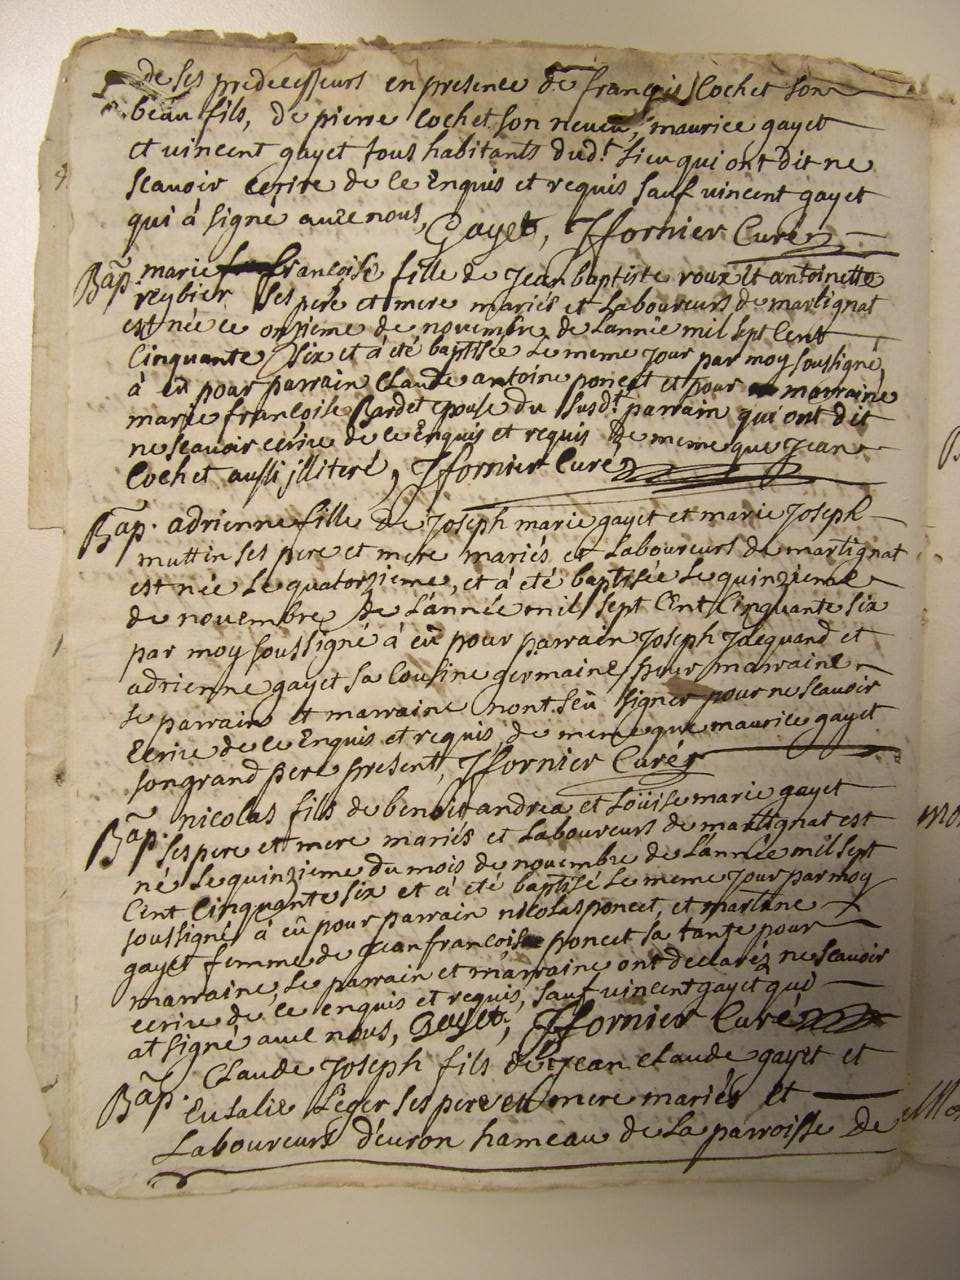 de ses predecesseurs en presence de françois Cochet son
beau fils, de pierre Cochet son neveu, maurice gayet
et vincent gayet tous habitants dud.t lieu qui ont dit ne
scavoir ecrire de ce enquis et requis sauf vincent gayet
qui à signe avec nous, Gayet, Jfornier Curé
Bap. marie françoise fille de jean baptiste roux et antoinette
reybier ses pere et mere mariés et Laboureurs de martignat
est née ce onzieme de novembre de Lannée mil sept Cent
Cinquante six et à été baptisée Le meme jour par moy soussigné,
à eu pour parrain Claude antoine poncet et pour marraine
marie françoise Cardet epouse du susd.t parrain qui ont dit
ne scavoir ecrire de ce enquis et requis de meme que jean
Cochet aussi jlliteré, Jfornier Curé
Bap. adrienne fille de Joseph marie gayet et marie Joseph
muttin ses pere et mere mariés et Laboureurs de martignat
est née Le quatorzieme, et à été baptisée Le quinzieme
de novembre de Lannée mil sept Cent Cinquante six
par moy soussigné à eû pour parrain Joseph Jacquand et
adrienne gayet sa Cousine germaine pour marraine
Le parrain et marraine n'ont seû signer pour ne scavoir
Ecrire de ce Enquis et requis, de meme que maurice gayet
son grand pere present, Jfornier Curé
Bap. nicolas fils de benoit andrea et Loüise marie gayet
ses pere et mere mariés et Laboureurs de martignat est
né Le quinzieme du mois de novembre de Lannée mil sept
Cent Cinquante six et à été baptisé Le meme jour par moy
soussigné à eû pour parrain nicolas poncet, et martine
gayet femme de jean françois poncet sa tante pour
marraine, Le parrain et marraine ont declarés ne scavoir
ecrire de ce enquis et requis, sauf vincent gayet qui
at signé avec nous, Gayet, Jfornier Curé
Bap. Claude Joseph fils de jean Claude gayet et
Eulalie Leger ses pere et mere mariés et
Laboureurs d'evron hameau de La parroisse de